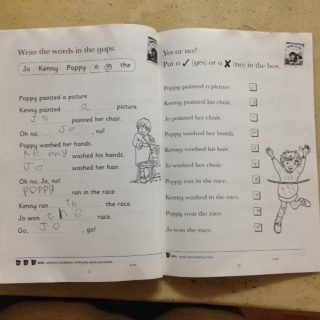 Write the words in the gaps.
Jo Kenny Poppy a in the
Poppy painted a picture.
Kenny painted a picture.
Jo painted her chair.
Oh no, Jo, no!
Poppy washed her hands.
Kenny washed his hands.
Jo washed her hair.
Oh no, Jo, no!
Poppy ran in the race.
Kenny ran in the race.
Jo won the race.
Go, Jo, go!
Yes or no?
Put a ✓ (yes) or a ✗ (no) in the box.
Poppy painted a picture.
Kenny painted his chair.
Jo painted her chair.
Poppy washed her hands.
Kenny washed his hair.
Jo washed her hair.
Poppy ran in the race.
Kenny washed in the race.
Poppy won the race.
Jo won the race.